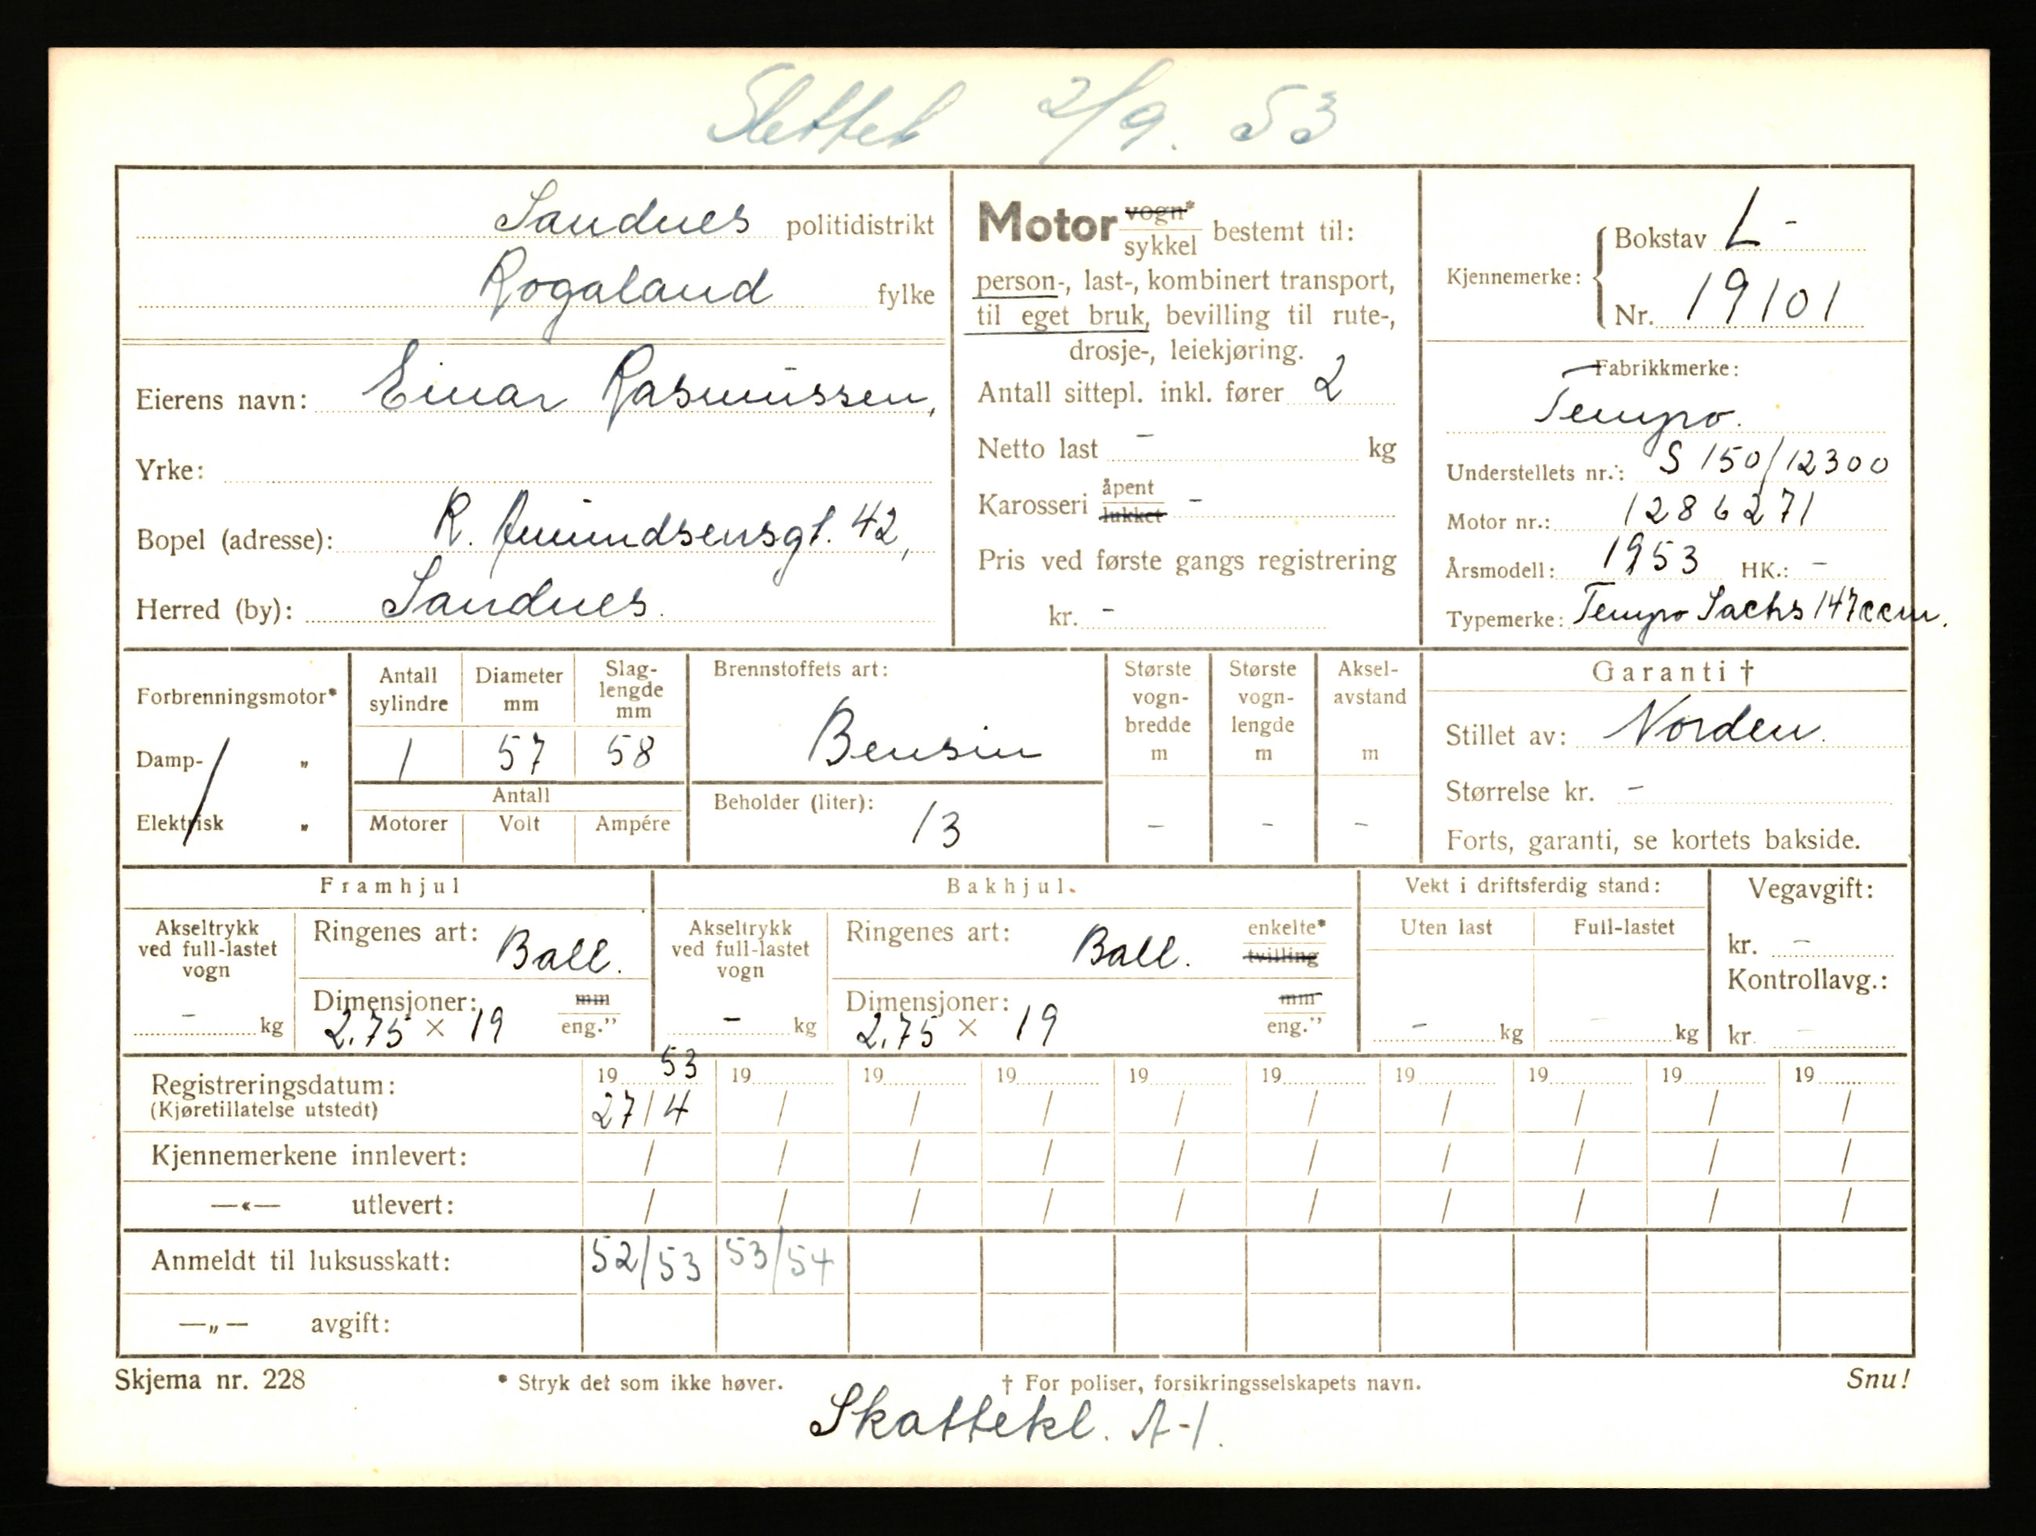 Slettet 2/9. 53
Sandnes politidistrikt
Rogaland fylke
Eierens navn: Einar Rasmussen,
Yrke:
Bopel (adresse): R. Amundsensgt. 42,
Herred (by): Sandnes.
Motor vogn* sykkel bestemt til:
person-, last-, kombinert transport,
til eget bruk, bevilling til rute-,
drosje-, leiekjøring.
Antall sittepl. inkl. fører 2
Netto last - kg
Karosseri åpent lukket -
Pris ved første gangs registrering
kr. -
Kjennemerke: Bokstav L -
Nr. 19101
Fabrikkmerke:
Tempo.
Understellets nr.: S 150/12300
Motor nr.: 1286271
Årsmodell: 1953 HK.: -
Typemerke: Tempo Sachs 147ccm.
Forbrenningsmotor*
Damp- „
Elektrisk „
Antall sylindre Diameter mm Slag-lengde mm
1 57 58
Antall
Motorer Volt Ampére
Brennstoffets art:
Bensin
Beholder (liter):
13
Største vogn-bredde m
-
Største vogn-lengde m
-
Aksel-avstand m
-
Garanti †
Stillet av: Norden.
Størrelse kr. -
Forts, garanti, se kortets bakside.
Framhjul
Akseltrykk ved full-lastet vogn
- kg
Ringenes art: Ball.
Dimensjoner: mm
2.75 × 19 eng.”
Bakhjul.
Akseltrykk ved full-lastet vogn
- kg
Ringenes art: Ball. enkelte* tvilling
Dimensjoner: mm
2.75 × 19 eng.”
Vekt i driftsferdig stand:
Uten last Full-lastet
- kg - kg
Vegavgift:
kr. -
Kontrollavg.:
kr. -
Registreringsdatum: 19 53 19 19 19 19 19 19 19 19 19
(Kjøretillatelse utstedt) 27/4 / / / / / / / / /
Kjennemerkene innlevert: / / / / / / / / / /
—«— utlevert: / / / / / / / / / /
Anmeldt til luksusskatt: 52/53 53/54
—„— avgift:
Skjema nr. 228 * Stryk det som ikke høver. † For poliser, forsikringsselskapets navn. Snu!
Skattekl. A-1.